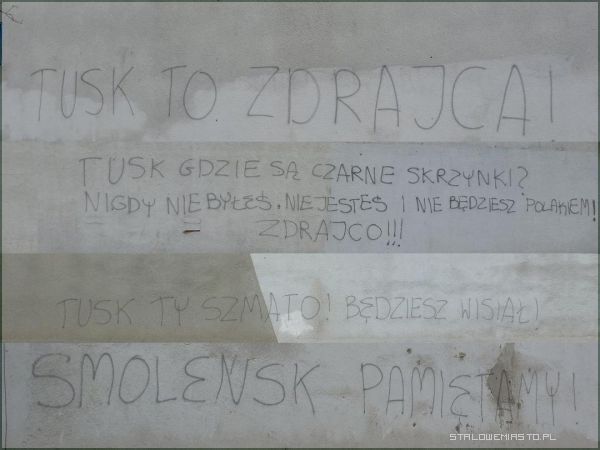 TUSK TO ZDRAJCA!
TUSK GDZIE SĄ CZARNE SKRZYNKI?
NIGDY NIE BYŁEŚ, NIE JESTEŚ I NIE BĘDZIESZ POLAKIEM!
ZDRAJCO!!!
TUSK TY SZMATO! BĘDZIESZ WISIAŁ!
SMOLEŃSK PAMIĘTAMY!
STALOWEMIASTO.PL